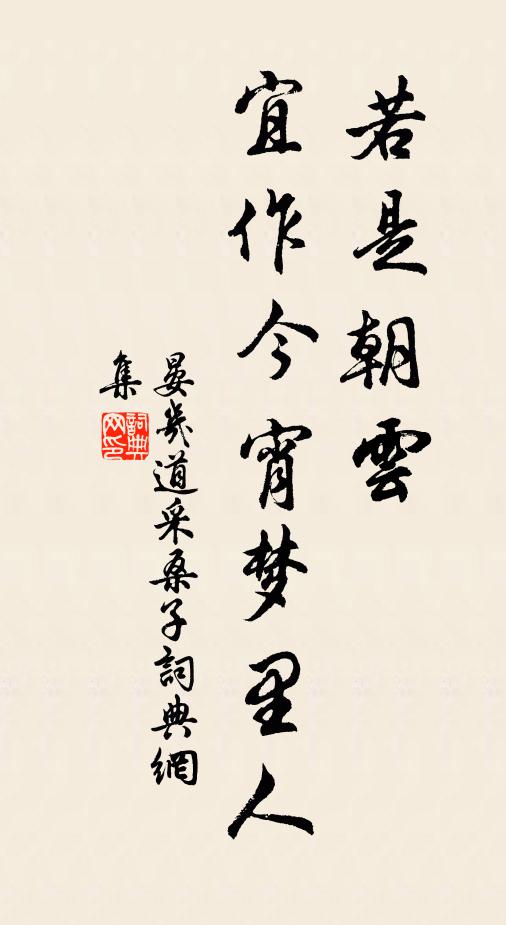 若是朝雲
宜作今宵梦里人
晏幾道采桑子詞典網
集
詞典网印